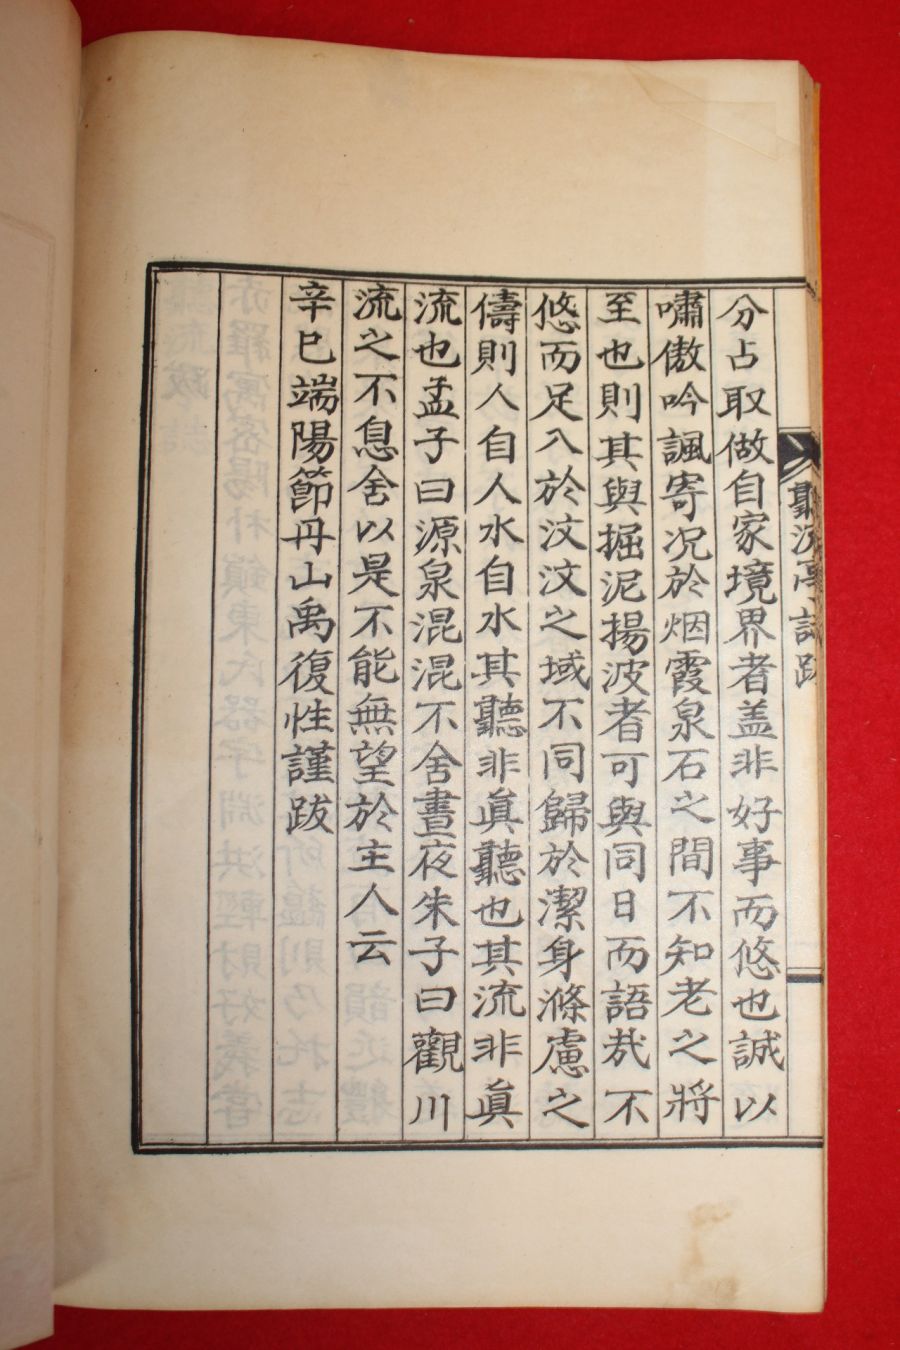 聽流亭詩跋
分占取做自家境界者盖非好事而悠也誠以
嘯傲吟諷寄况於烟霞泉石之間不知老之將
至也則其與掘泥揚波者可與同日而語㢤不
悠而足入於汶汶之域不同歸於潔身滌慮之
儔則人自人水自水其聽非眞聽也其流非眞
流也孟子曰源泉混混不舍晝夜朱子曰觀川
流之不息舍以是不能無望於主人云
辛巳端陽節丹山禹復性謹跋